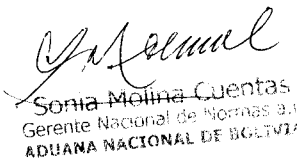 Sonia Molina Cuentas
Gerente Nacional de Normas a.i.
ADUANA NACIONAL DE BOLIVIA